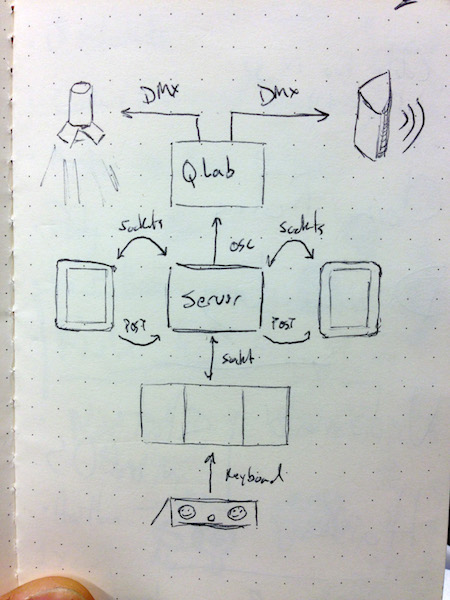 DMX
DMX
QLab
Sockets
OSC
Sockets
Server
POST
POST
Socket
Keyboard